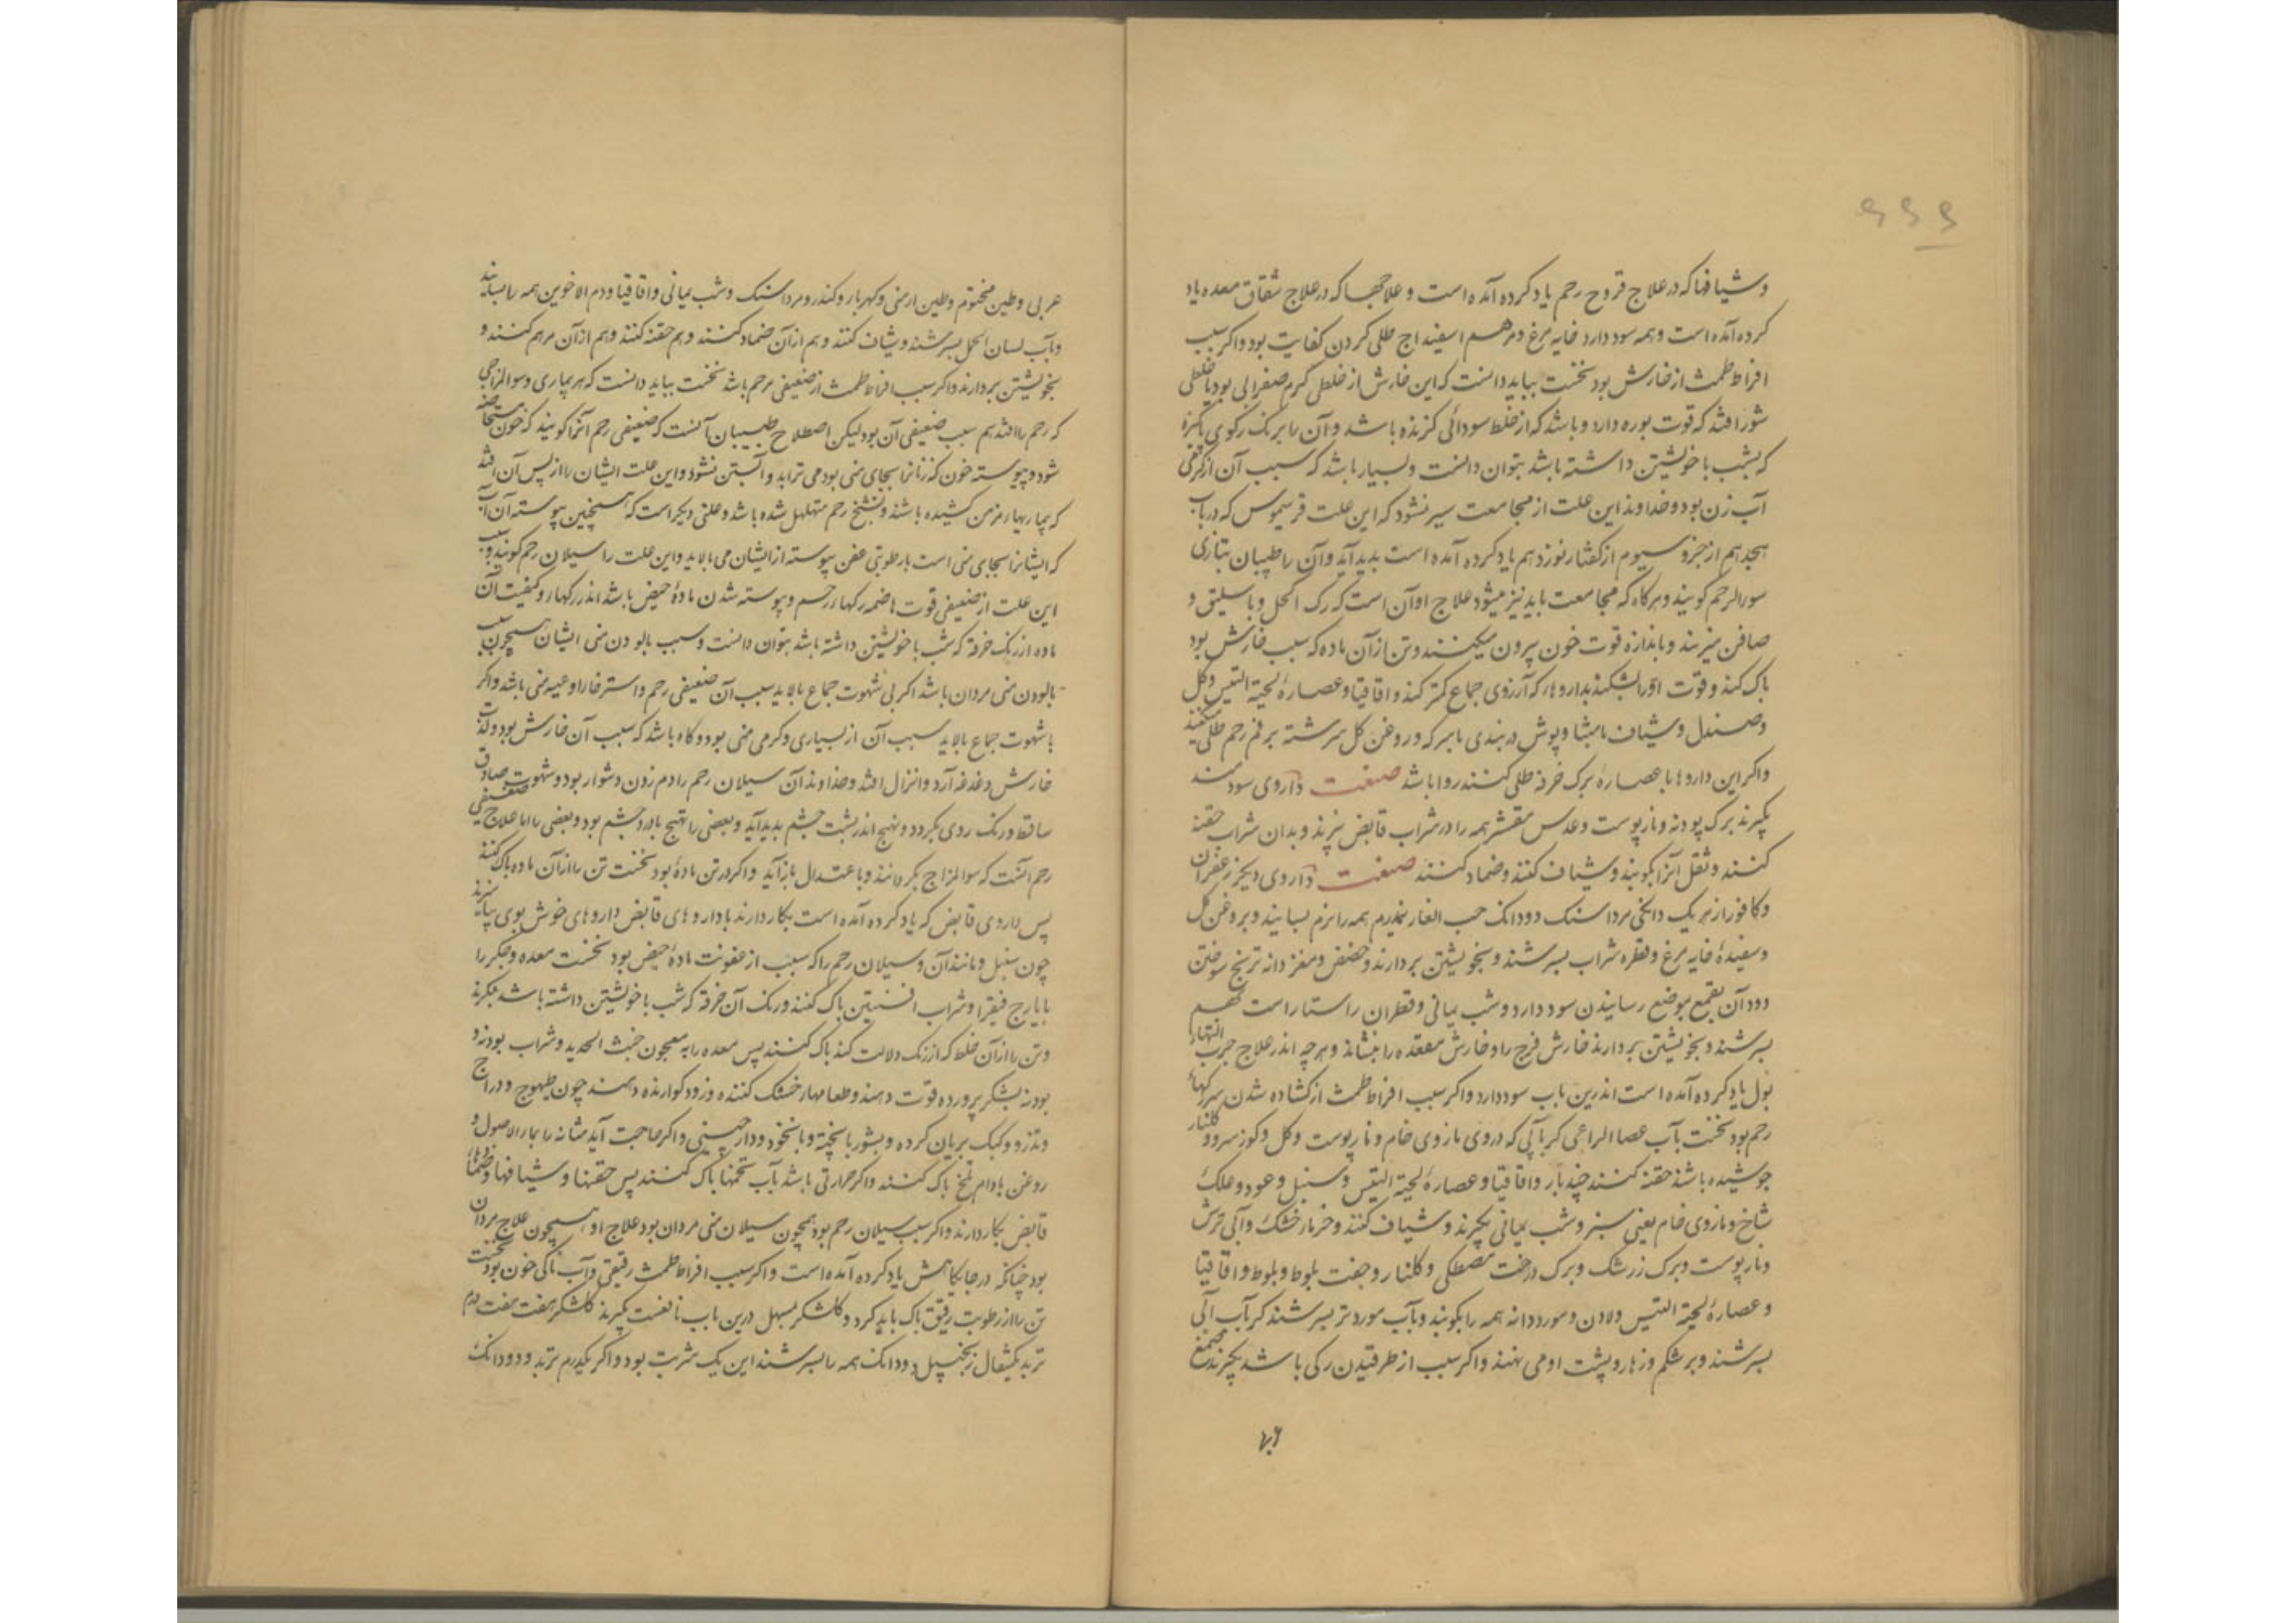 وشیافها که در علاج قروح رحم یاد کرده آمده است و علاجها که در علاج شقاق معده یاد
کرده آمده است و همه سود دارد خایه مرغ و مرهم اسفیداج طلی کردن کفایت بود واکر سبب
افراط طمث از خارش بود نخست بباید دانست که این خارش از خلطی کرم صفرایی بود یا خلطی
شور افتد که قوت بوره دارد و باشد که از خلط سودائی کزنده باشد و آن را برنک رکوی پاکیزه
که بشب با خویشتن داشته باشد بتوان دانست و بسیار باشد که سبب آن
آب زن بود و خداوند این علت از مجامعت سیر نشود که این علت فریسموس که در باب
هجدهم از جزو سیوم از کفتار نوزدهم یاد کرده آمده است بدید آید و آن را طبیبان بتازی
سورالرحم کویند و هرکاه که مجامعت یابد نیز میشود علاج او آن است که رک اکحل و باسلیق و
صافن میزنند و باندازه قوت خون بیرون میکنند و تن از آن ماده که سبب خارش بود
پاک کند و قوت اورا بشکنند بداروهاء که آرزوی جماع کمتر کند و اقاقیا و عصارهٔ لحیة التیس و کل
وصندل و شیاف مامیثا و پوش دربندی بسرکه و روغن کل سرشته بر فم رحم طلی کنند
واکر این داروها با عصارهٔ برک خرفه طلی کنند روا باشد صفت داروی سودمند
بکیرند برک پودنه و نارپوست و عدس مقشر همه را در شراب قابض بپزند و بدان شراب حقنه
کنند و ثفل آنرا بکوبند و شیاف کنند و ضماد کنند صفت داروی دیکر زعفران
وکافور از هر یک دانکی مرداسنک دودانک حب الغار نیمدرم همه را نرم بسایند و بروغن کل
وسفیدهٔ خایه مرغ و قطره شراب بسرشند و بخویشتن بردارند و حضض و مغز دانه ترنج سوختن
دود آن بقمع بموضع رسانیدن سود دارد و شب یمانی و قطران راستا راست بهم
بسرشند و بخویشتن بردارند خارش فرج را و خارش مقعده را بنشاند و هرچه اندر علاج حرب التهاء
بول یاد کرده آمده است اندرین باب سود دارد واکر سبب افراط طمث از کشاده شدن سر رکهاء
رحم بود نخست بآب عصا الراعی کر یا آبی که در وی مازوی خام و نارپوست و کل و کوز سرو و کلنار
جوشیده باشد حقنه کنند چند بار و اقاقیا و عصارهٔ لحیة التیس و سنبل و عود و علک
شاخ و مازوی خام یعنی سبز و شب یمانی بکیرند و شیاف کنند و خرمار خشک و آبی ترش
ونارپوست و برک زرشک و برک درخت مصطکی و کلنار و جفت بلوط و بلوط و اقاقیا
و عصارهٔ لحیة التیس و لادن و مورددانه همه را بکوبند و بآب مورد تر بسرشند کر آب آبی
بسرشند و بر شکم و زهار و پشت او می نهند واکر سبب از طرقیدن رکی باشد بکیرند صمغ
عربی و طین مختوم و طین ارمنی و کهربار و کندر و مرداسنک و شب یمانی و اقاقیا و دم الاخوین همه را بسایند
وبآب لسان الحمل بسرشند و شیاف کنند و هم از آن ضماد کنند و هم حقنه کنند و هم از آن مرهم کنند و
بخویشتن بردارند واکر سبب افراط طمث از ضعیفی رحم باشد نخست بباید دانست که هر بیماری و سوالمزاجی
که رحم را افتد هم سبب ضعیفی آن بود لیکن اصطلاح طبیبان آنست که ضعیفی رحم آنرا کویند که خون مستحاضه
شود و پیوسته خون که زنانرا بجای منی بود می تراید و آبستن نشود و این علت ایشان را از پس آن افتد
که بیماریهاء مزمن کشیده باشند و تشنج رحم متهلهل شده باشد و علتی دیکر است که همچنین پیوسته آن آب
که ایشانرا بجای منی است با رطوبتی عفن پیوسته از ایشان می پالاید و این علت را سیلان رحم کویند و سبب
این علت از ضعیفی قوت هاضمه رکهاء رحم و پیوسته شدن مادهٔ حیض باشد اندر رکهاء و کیفیت آن
ماده از رنک خرقه که شب با خویشتن داشته باشد بتوان دانست و سبب پالودن منی ایشان همچون سبب
پالودن منی مردان باشد اکر بی شهوت جماع پالاید سبب آن ضعیفی رحم و استرخار اوعیه منی باشد واکر
با شهوت جماع پالاید سبب آن از بسیاری و کرمی منی بود و کاه باشد که سبب آن خارش بود و لذت
خارش دغدغه آرد و انزال افتد و خداوند آن سیلان رحم را دم زدن دشوار بود و شهوت صادق
ساقط و رنک روی بکردد و تهیج اندر پشت چشم بدید آید و بعضی را تهیج با درد چشم بود و بعضی را اما علاج ضعیفی
رحم آنست که سوالمزاج بکردانند و باعتدال بازآید واکر در تن مادهٔ بود نخست تن را از آن ماده پاک کنند
پس داروی قابض که یاد کرده آمده است بکار دارند با داروهای قابض داروهای خوش بوی بیامیزند
چون سنبل و مانند آن و سیلان رحم را که سبب از عفونت مادهٔ حیض بود نخست معده و جکر را
بایارج فیقرا و شراب افسنتین پاک کنند و رنک آن خرقه که شب با خویشتن داشته باشد بنکرند
وتن را از آن خلط که از رنک دلالت کند پاک کنند پس معده را به معجون خبث الحدید و شراب پودنه و
پودنه بشکر پرورده قوت دهند و طعامهاء خشک کننده و زود کوارنده دهند چون طیهوج و دراج
وتذرو و کبک بریان کرده و بشوربا پخته و بانخود و دارچینی واکر حاجت آید مثانه را بماء الاصول و
روغن بادام تلخ پاک کنند واکر حرارتی باشد بآب تخمها پاک کنند پس حقنها و شیافها و ضمادهاء
قابض بکار دارند واکر سبب سیلان رحم بود همچون سیلان منی مردان بود علاج او همچون علاج مردان
بود چنانکه در جایکاهش یاد کرده آمده است واکر سبب افراط طمث رقیقی و آب ناکی خون بود نخست
تن را از رطوبت رقیق پاک باید کرد و کلشکر مسهل درین باب نافعست بکیرند کلشکر هفت درم
تربد یکمثقال زنجبیل دودانک همه را بسرشند این یک شربت بود واکر یکدرم تربد و دودانک